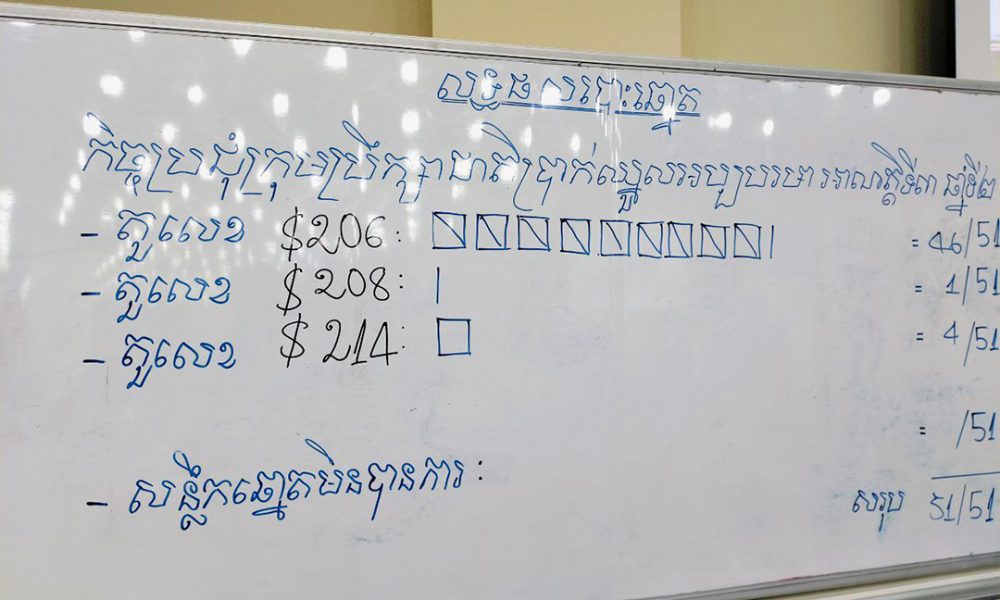 លទ្ធផលបោះឆ្នោត
កិច្ចប្រជុំក្រុមប្រឹក្សាជាតិប្រាក់ឈ្នួលអប្បបរមា អាណត្តិទី៣ ឆ្នាំទី២
- តួលេខ $206: = 46/51
- តួលេខ $208: = 1/51
- តួលេខ $214: = 4/51
= /51
- សន្លឹកឆ្នោតមិនបានការ :
សរុប 51/51